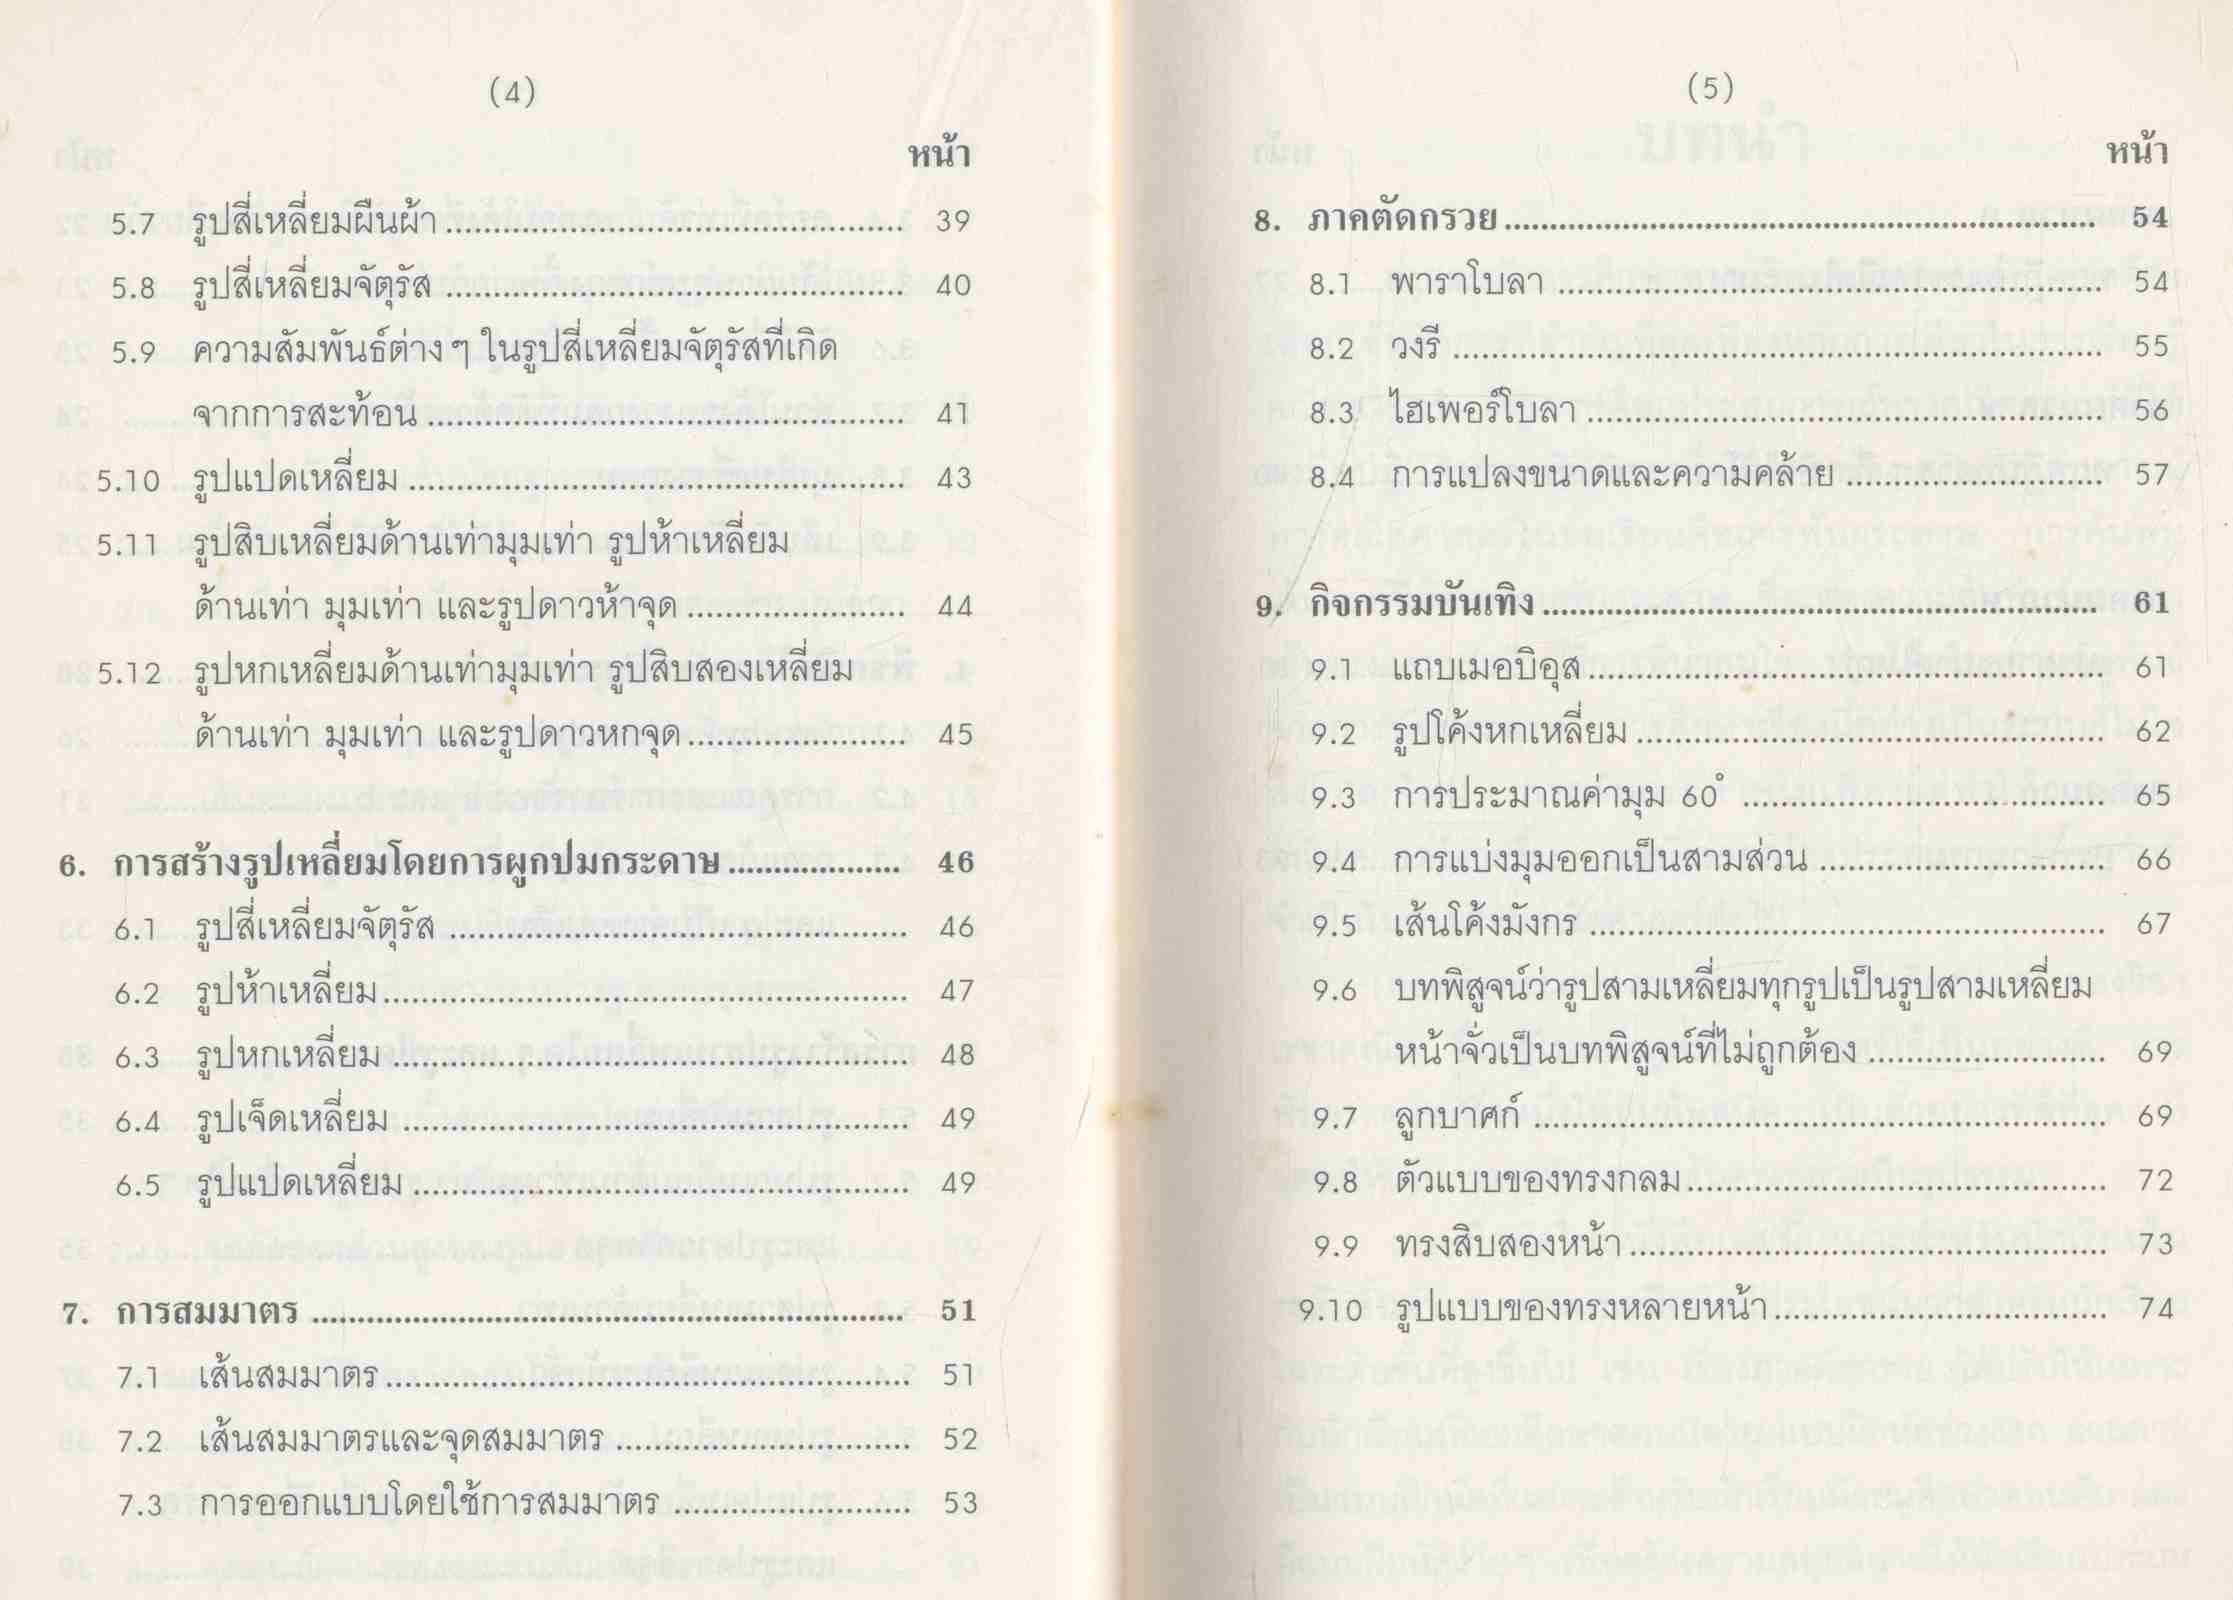 (4)
หน้า
5.7 รูปสี่เหลี่ยมผืนผ้า ................................................ 39
5.8 รูปสี่เหลี่ยมจัตุรัส ................................................ 40
5.9 ความสัมพันธ์ต่าง ๆ ในรูปสี่เหลี่ยมจัตุรัสที่เกิด
จากการสะท้อน ................................................ 41
5.10 รูปแปดเหลี่ยม ................................................ 43
5.11 รูปสิบเหลี่ยมด้านเท่ามุมเท่า รูปห้าเหลี่ยม
ด้านเท่า มุมเท่า และรูปดาวห้าจุด ....................... 44
5.12 รูปหกเหลี่ยมด้านเท่ามุมเท่า รูปสิบสองเหลี่ยม
ด้านเท่า มุมเท่า และรูปดาวหกจุด ....................... 45
6. การสร้างรูปเหลี่ยมโดยการผูกปมกระดาษ ................... 46
6.1 รูปสี่เหลี่ยมจัตุรัส ................................................ 46
6.2 รูปห้าเหลี่ยม ................................................ 47
6.3 รูปหกเหลี่ยม ................................................ 48
6.4 รูปเจ็ดเหลี่ยม ................................................ 49
6.5 รูปแปดเหลี่ยม ................................................ 49
7. การสมมาตร ................................................ 51
7.1 เส้นสมมาตร ................................................ 51
7.2 เส้นสมมาตรและจุดสมมาตร ............................... 52
7.3 การออกแบบโดยใช้การสมมาตร ......................... 53
(5)
หน้า
8. ภาคตัดกรวย ................................................ 54
8.1 พาราโบลา ................................................ 54
8.2 วงรี ................................................ 55
8.3 ไฮเพอร์โบลา ................................................ 56
8.4 การแปลงขนาดและความคล้าย ........................... 57
9. กิจกรรมบันเทิง ................................................ 61
9.1 แถบเมอบิอุส ................................................ 61
9.2 รูปโค้งหกเหลี่ยม ................................................ 62
9.3 การประมาณค่ามุม 60° ...................................... 65
9.4 การแบ่งมุมออกเป็นสามส่วน .............................. 66
9.5 เส้นโค้งมังกร ................................................ 67
9.6 บทพิสูจน์ว่ารูปสามเหลี่ยมทุกรูปเป็นรูปสามเหลี่ยม
หน้าจั่วเป็นบทพิสูจน์ที่ไม่ถูกต้อง ......................... 69
9.7 ลูกบาศก์ ................................................ 69
9.8 ตัวแบบของทรงกลม ............................................ 72
9.9 ทรงสิบสองหน้า ................................................ 73
9.10 รูปแบบของทรงหลายหน้า ................................... 74